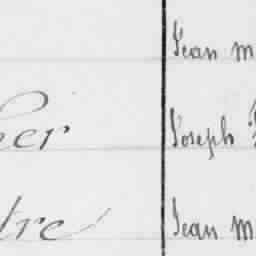 Jean M
her Joseph
tre Jean M